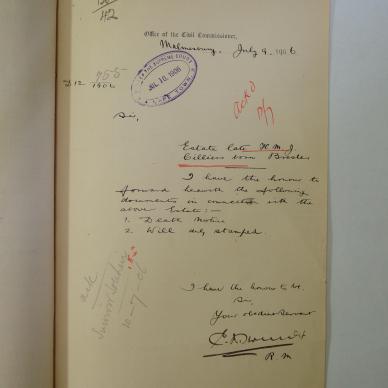 42
Office of the Civil Commissioner,
Malmesbury, July 9, 1906
755
D.12. 1906
THE SUPREME COURT
JUL 10 1906
CAPE TOWN
ackd
Sir,
Estate late H. M. J.
Cilliers born
I have the honour to
forward herewith the following
documents in connection with the
above Estate:—
1. Death Notice
2. Will duly stamped.
ack
10-7-06
I have the honour to be,
Sir,
Your obedient servant
R. M